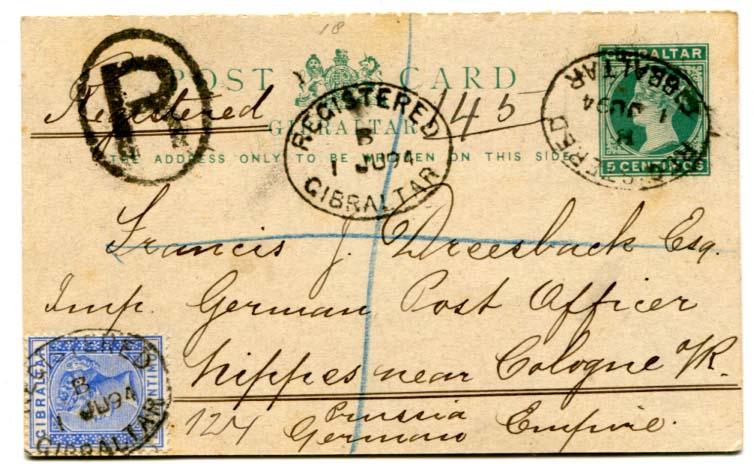 18
POST CARD
GIBRALTAR
Registered 145
THE ADDRESS ONLY TO BE WRITTEN ON THIS SIDE
R
REGISTERED
B
1 JU 94
GIBRALTAR
GIBRALTAR
5 CENTIMOS
REGISTERED
B
1 JU 94
GIBRALTAR
Francis J. Dreesback Esq.
Imp. German Post Officer
Nippes near Cologne o/R.
Prussia
German Empire.
124
GIBRALTAR
REGISTERED
B
1 JU 94
GIBRALTAR